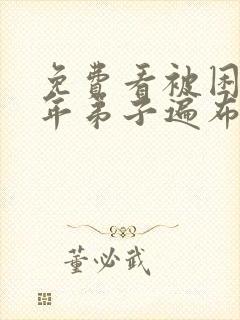 免費看被困
年弟子遍布
董必武